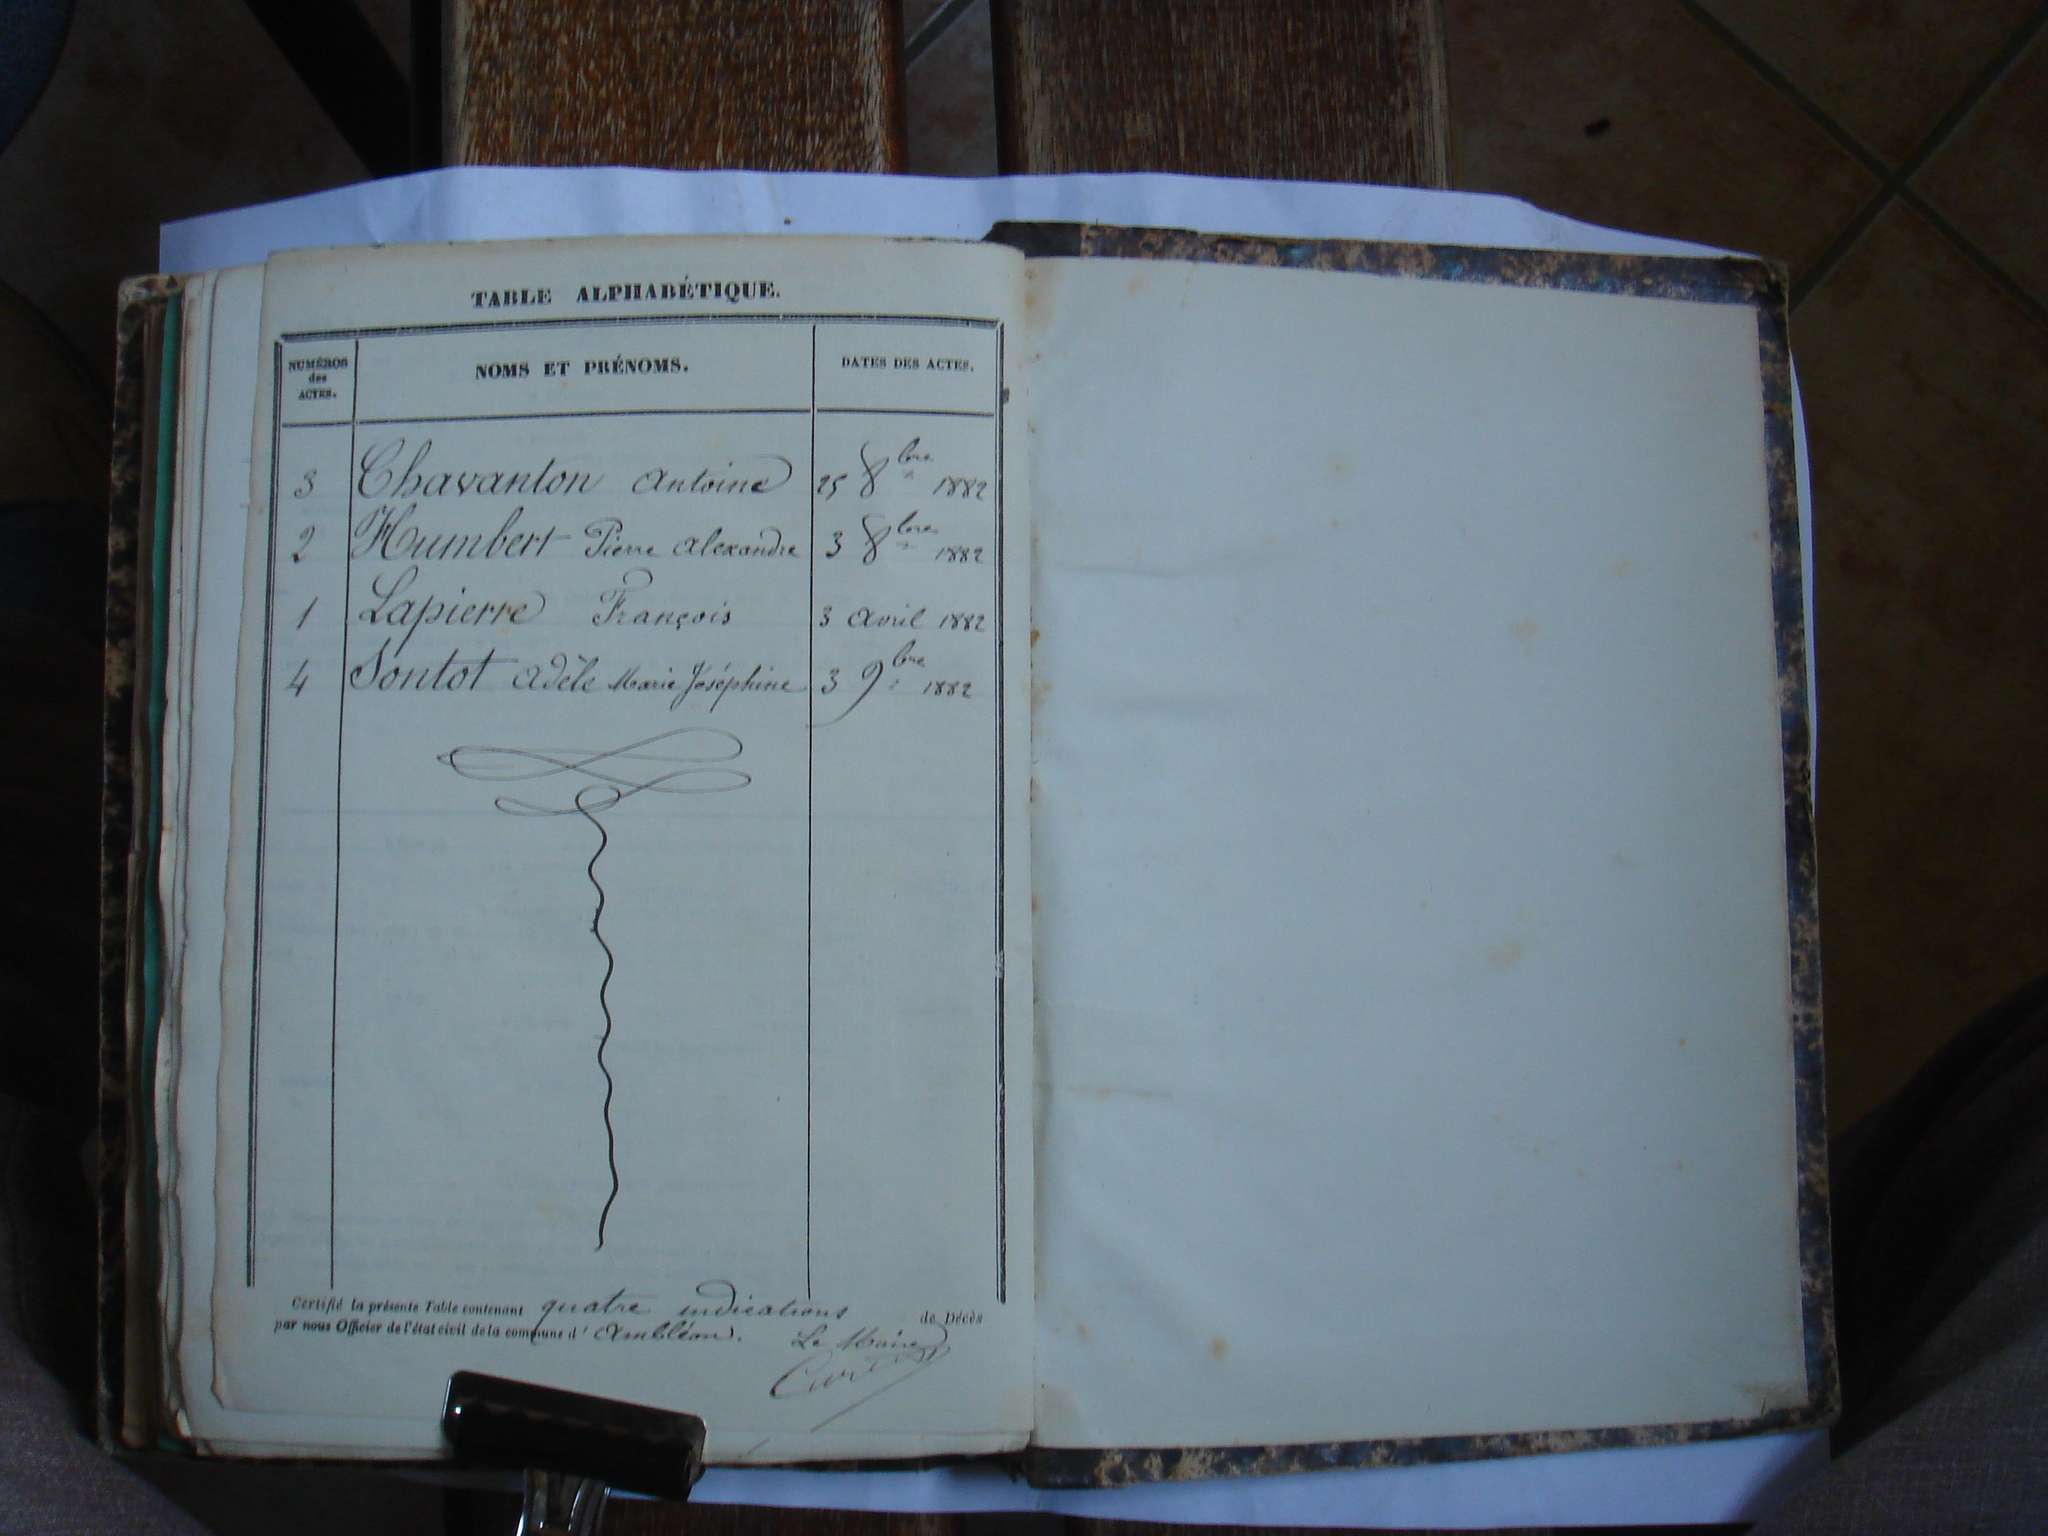 TABLE ALPHABÉTIQUE.
NUMÉROS des ACTES. NOMS ET PRÉNOMS. DATES DES ACTES.
3 Chavanton Antoine 25 8bre 1882
2 Humbert Pierre Alexandre 3 8bre 1882
1 Lapierre François 3 avril 1882
4 Sontot Adèle Marie Joséphine 3 9bre 1882
Certifié la présente Table contenant quatre indications de Décès
par nous Officier de l'état civil de la commune d' Ambléon. Le Maire